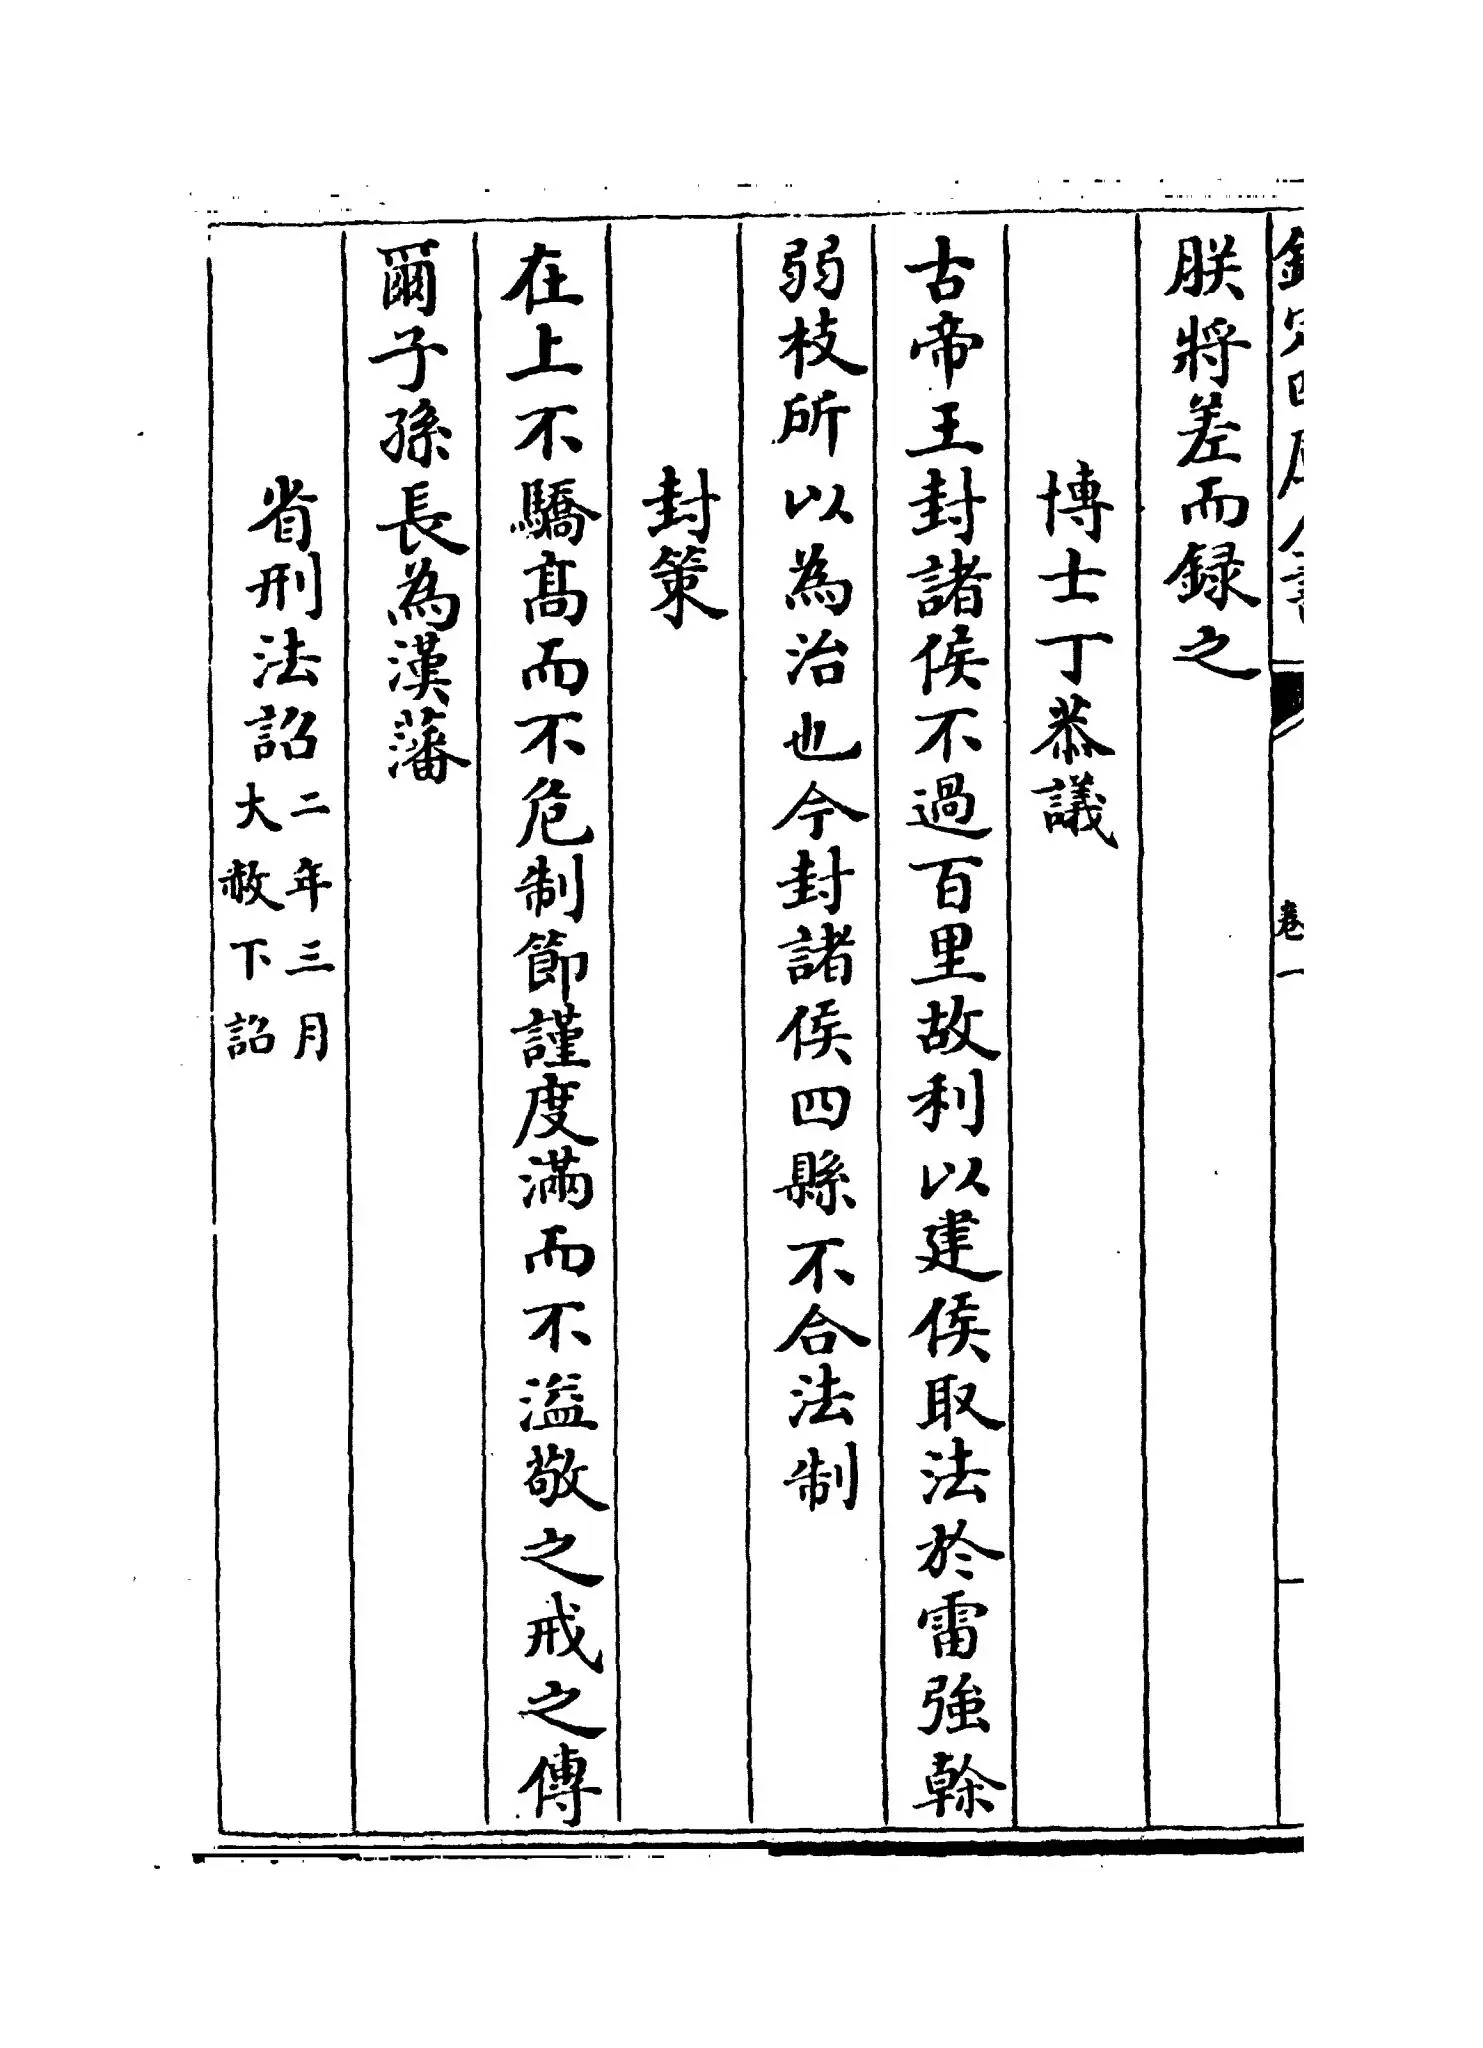 欽定四庫全書
卷一
朕將差而録之
博士丁恭議
古帝王封諸侯不過百里故利以建侯取法於雷強幹
弱枝所以為治也今封諸侯四縣不合法制
封策
在上不驕髙而不危制節謹度滿而不溢敬之戒之傳
爾子孫長為漢藩
省刑法詔二年三月
大赦下詔